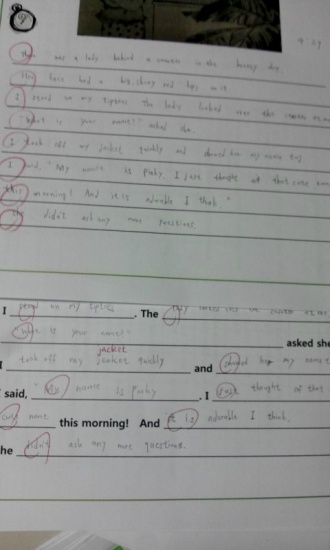 4.29
was a lady behind a counter in the
face had a big, shiny red lips on it
I stood on my tiptoes The lady looked over the counter
"What is your name?" asked she
I took off my jacket quickly and showed her my name tag
I said, "My name is Pinky. I just thought of that cute name
this morning! And it is adorable I think."
She didn't ask any more questions
I stood on my tiptoes. The lady looked over the counter at me
What is your name?" asked she
I took off my jacket quickly and showed her my name
jacket
I said, "My name is Pinky. I just thought of that
cute name this morning! And it is adorable I think.
he didn't ask any more questions.